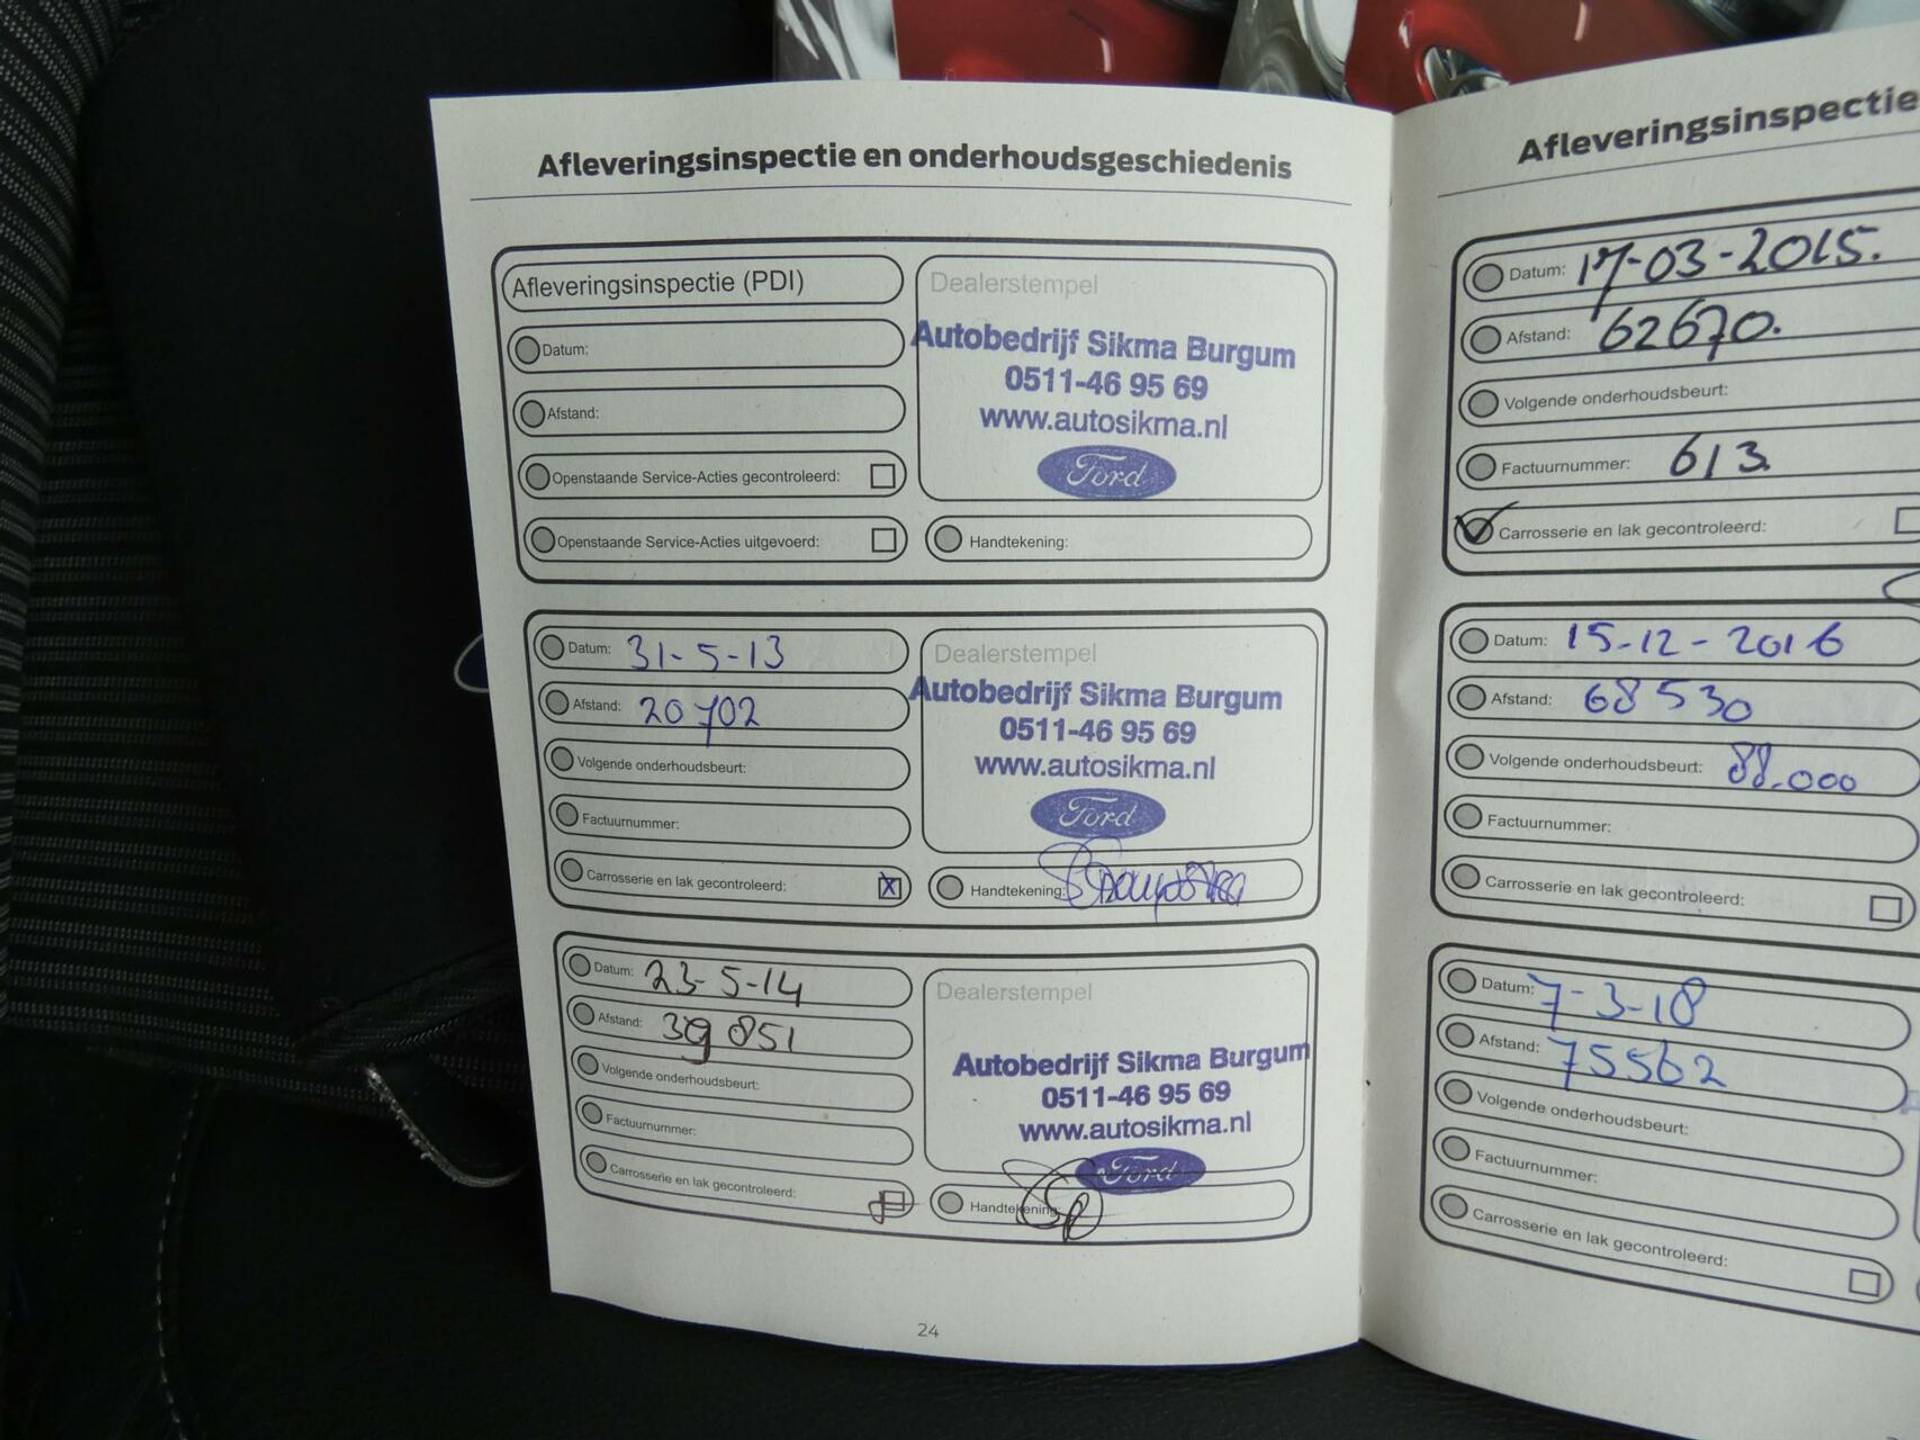 Afleveringsinspectie en onderhoudsgeschiedenis
Afleveringsinspectie (PDI)
Datum:
Afstand:
Openstaande Service-Acties gecontroleerd:
Openstaande Service-Acties uitgevoerd:
Dealerstempel
Autobedrijf Sikma Burgum
0511-46 95 69
www.autosikma.nl
Ford
Handtekening:
Datum: 31-5-13
Afstand: 20702
Volgende onderhoudsbeurt:
Factuurnummer:
Carrosserie en lak gecontroleerd: X
Dealerstempel
Autobedrijf Sikma Burgum
0511-46 95 69
www.autosikma.nl
Ford
Handtekening:
Datum: 23-5-14
Afstand: 39 851
Volgende onderhoudsbeurt:
Factuurnummer:
Carrosserie en lak gecontroleerd:
Dealerstempel
Autobedrijf Sikma Burgum
0511-46 95 69
www.autosikma.nl
Ford
Handtekening:
24
Afleveringsinspectie
Datum: 17-03-2015.
Afstand: 62670.
Volgende onderhoudsbeurt:
Factuurnummer: 613
Carrosserie en lak gecontroleerd:
Datum: 15-12-2016
Afstand: 68530
Volgende onderhoudsbeurt: 88.000
Factuurnummer:
Carrosserie en lak gecontroleerd:
Datum: 7-3-18
Afstand: 75562
Volgende onderhoudsbeurt:
Factuurnummer:
Carrosserie en lak gecontroleerd: